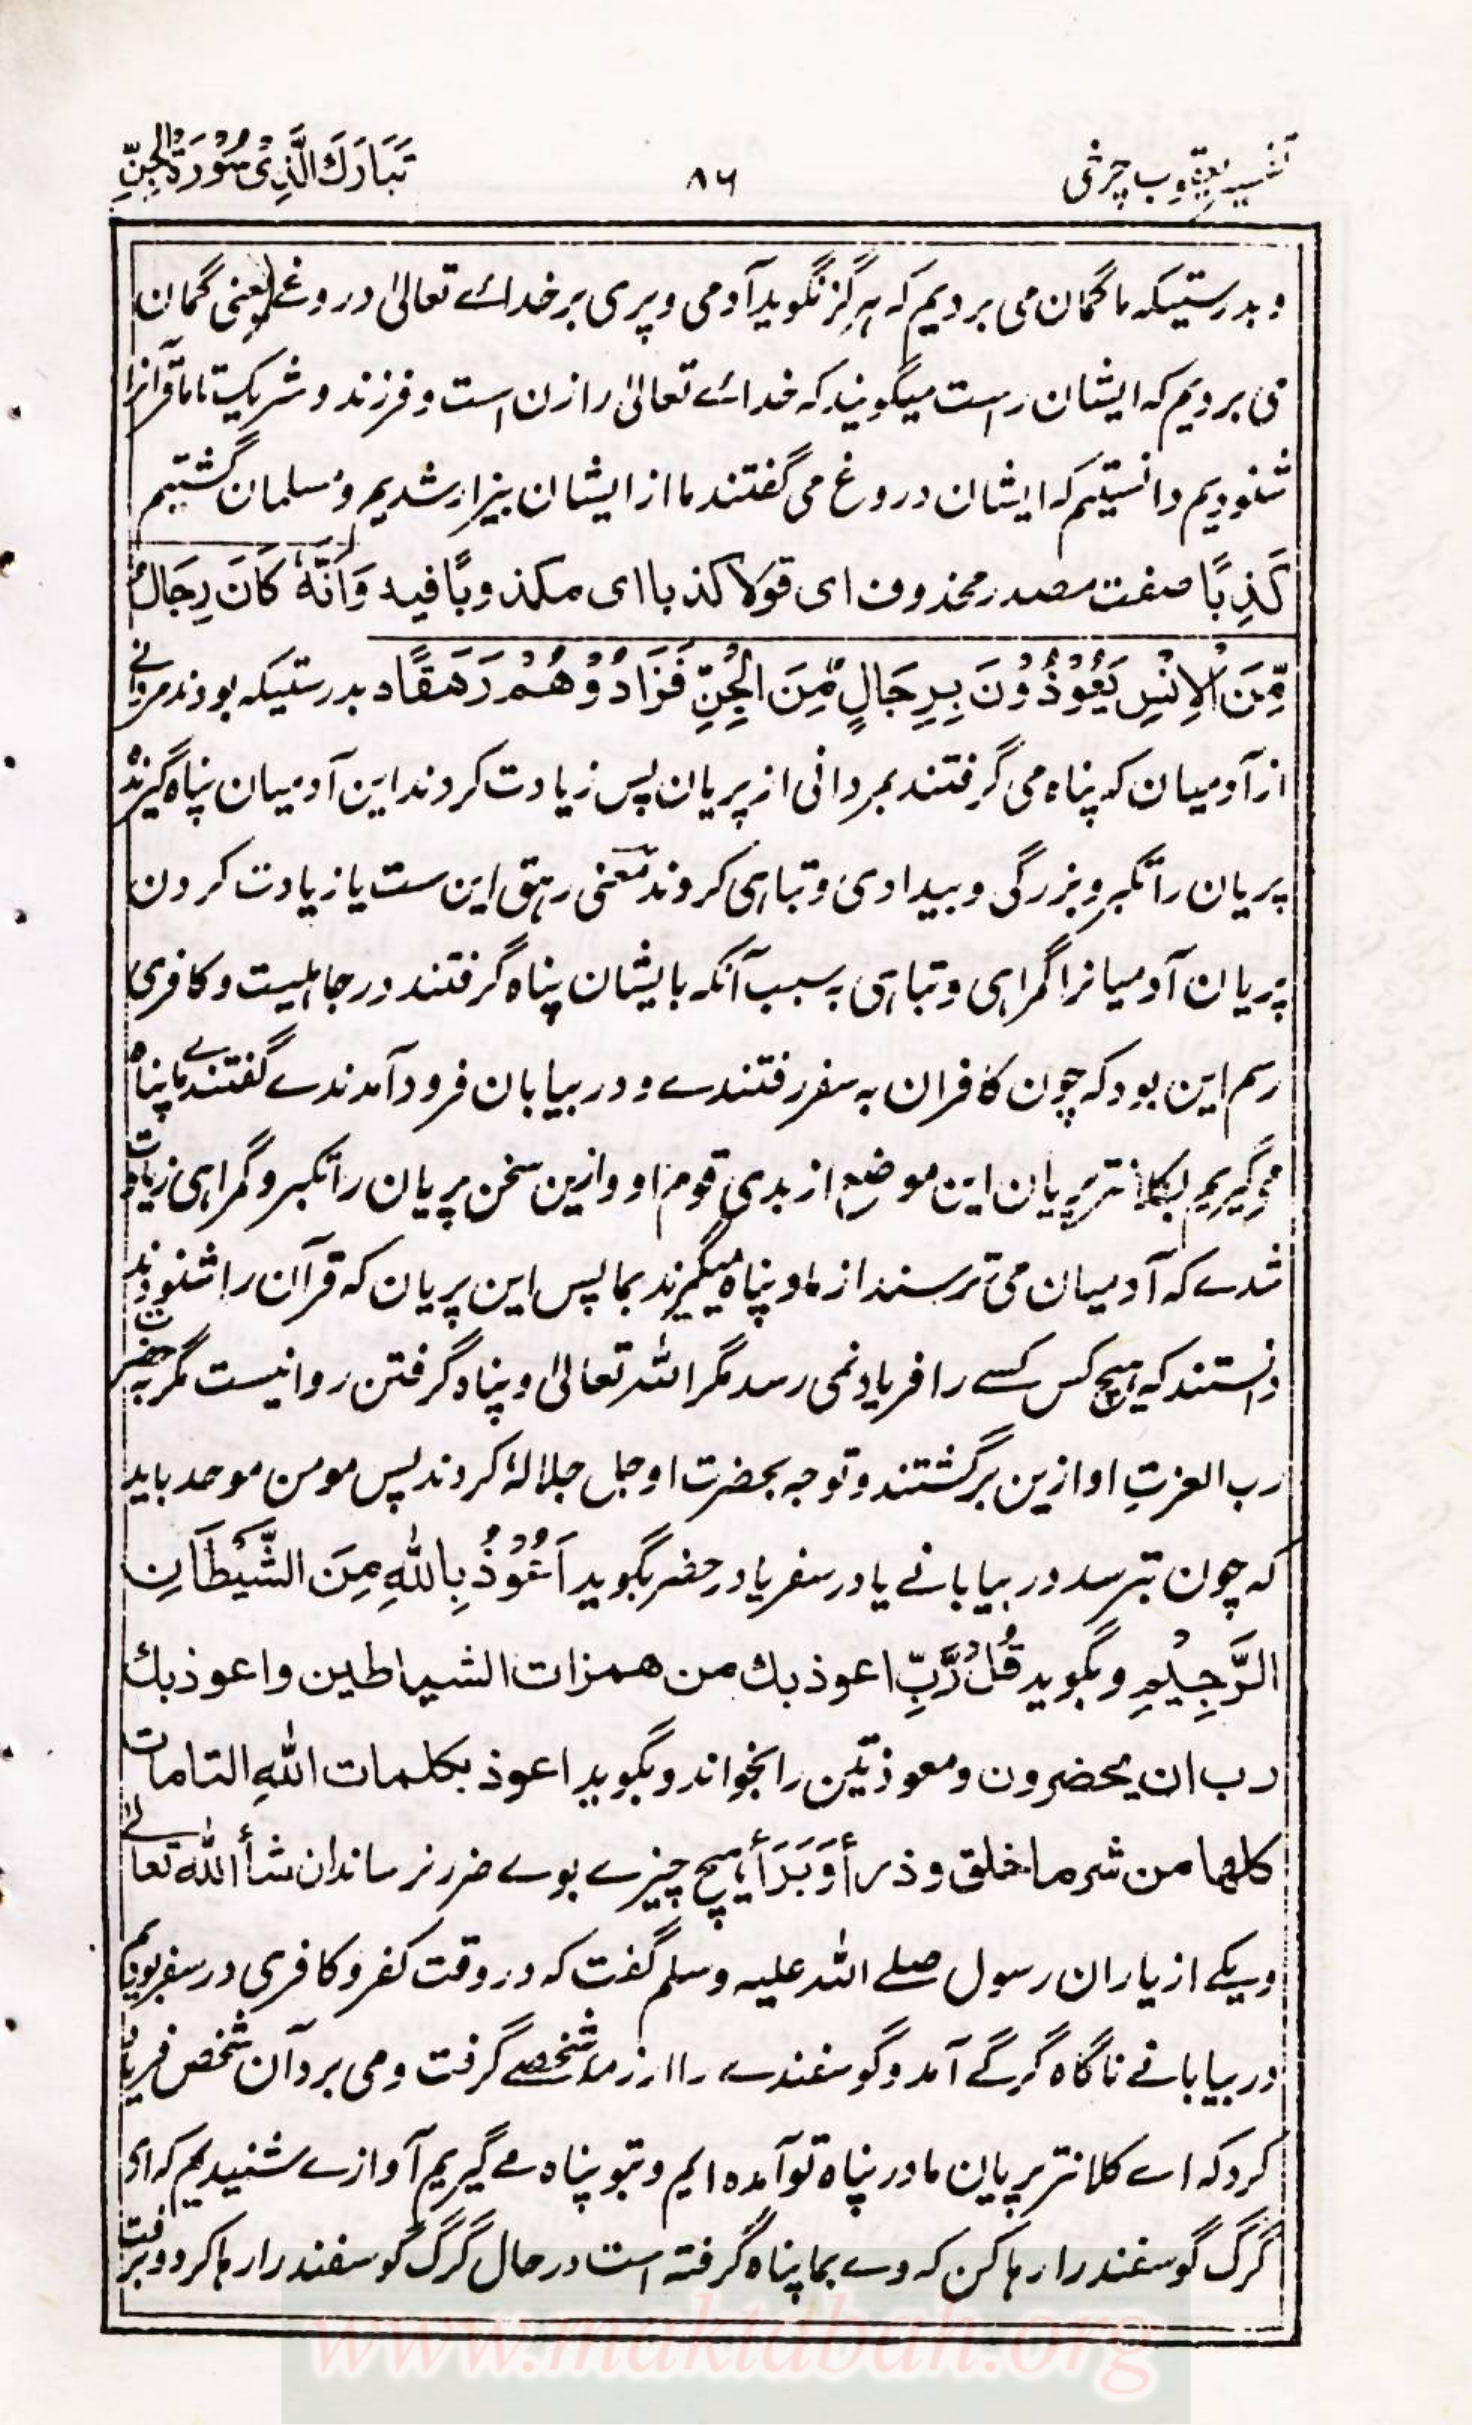 تفسیر یعقوب چرخی
۸۶
تَبَارَكَ الَّذِیْ سُوْرَةُ الْجِنِّ
و بدرستیکه ما گمان می بردیم که هرگز نگوید آدمی و پری بر خدائے تعالیٰ دروغے یعنی گمان
می بردیم که ایشان راست میگویند که خدائے تعالیٰ را زن است و فرزند و شریکیت تا ما قرآنرا
شنودیم دانستیم که ایشان دروغ می گفتند ما از ایشان بیزار شدیم و مسلمان گشتیم
كَذِبًا صفت مصدر محذوف ای قولا كذبا ای مكذوبًا فیه وَاَنَّهٗ كَانَ رِجَالٌ
مِّنَ الْاِنْسِ يَعُوْذُوْنَ بِرِجَالٍ مِّنَ الْجِنِّ فَزَادُوْهُمْ رَهَقًا٥ بدرستیکه بودند مردانے
از آدمیان که پناه می گرفتند بمردانی از پریان پس زیادت کردند این آدمیان پناه گیرنده
پریان را تکبر و بزرگی و بیدادی و تباهی کردند معنی رهق این ست یا زیادت کردن
پریان آدمیانرا گمراهی و تباهی به سبب آنکه بایشان پناه گرفتند در جاهلیت و کافری
رسم این بود که چون کافران به سفر رفتندے و در بیابان فرود آمدندے گفتندے ما پناه
میگیریم بکلانتر پریان این موضع از بدی قوم او و ازین سخن پریان را تکبر و گمراهی زیادت
شدے که آدمیان می ترسند از ما و پناه میگیرند بما پس این پریان که قرآن را شنودند
دانستند که هیچ کس کسے را فریاد نمی رسد مگر الله تعالیٰ و پناه گرفتن روا نیست مگر به حضرت
رب العزتِ او ازین برگشتند و توجه بحضرت او جل جلالهٗ کردند پس مومن موحد باید
که چون بترسد در بیابانے یا در سفر یا در حضر بگوید اَعُوْذُ بِاللهِ مِنَ الشَّيْطَانِ
الرَّجِيْمِ و بگوید قُلْ رَّبِّ اعوذ بك من همزات الشیاطین و اعوذ بك
رب ان یحضرون و معوذتین را بخواند و بگوید اعوذ بكلمات اللهِ التامات
كلها من شر ما خلق و ذرأ وَبَرَأَ هیچ چیزے بوے ضرر نرساند ان شأ الله تعالےٰ
و یکے از یاران رسول صلے الله علیه وسلم گفت که در وقت کفر و کافری در سفر بودیم
در بیابانے ناگاه گرگے آمد و گوسفندے را از رمهٔ شخصے گرفت و می برد آن شخص فریاد
کرد که اے کلانتر پریان ما در پناه تو آمده ایم و بتو پناه مے گیریم آوازے شنیدیم که ای
گرگ گوسفند را رها کن که وے بما پناه گرفته است در حال گرگ گوسفند را رها کرد و برفت
www.maktabah.org